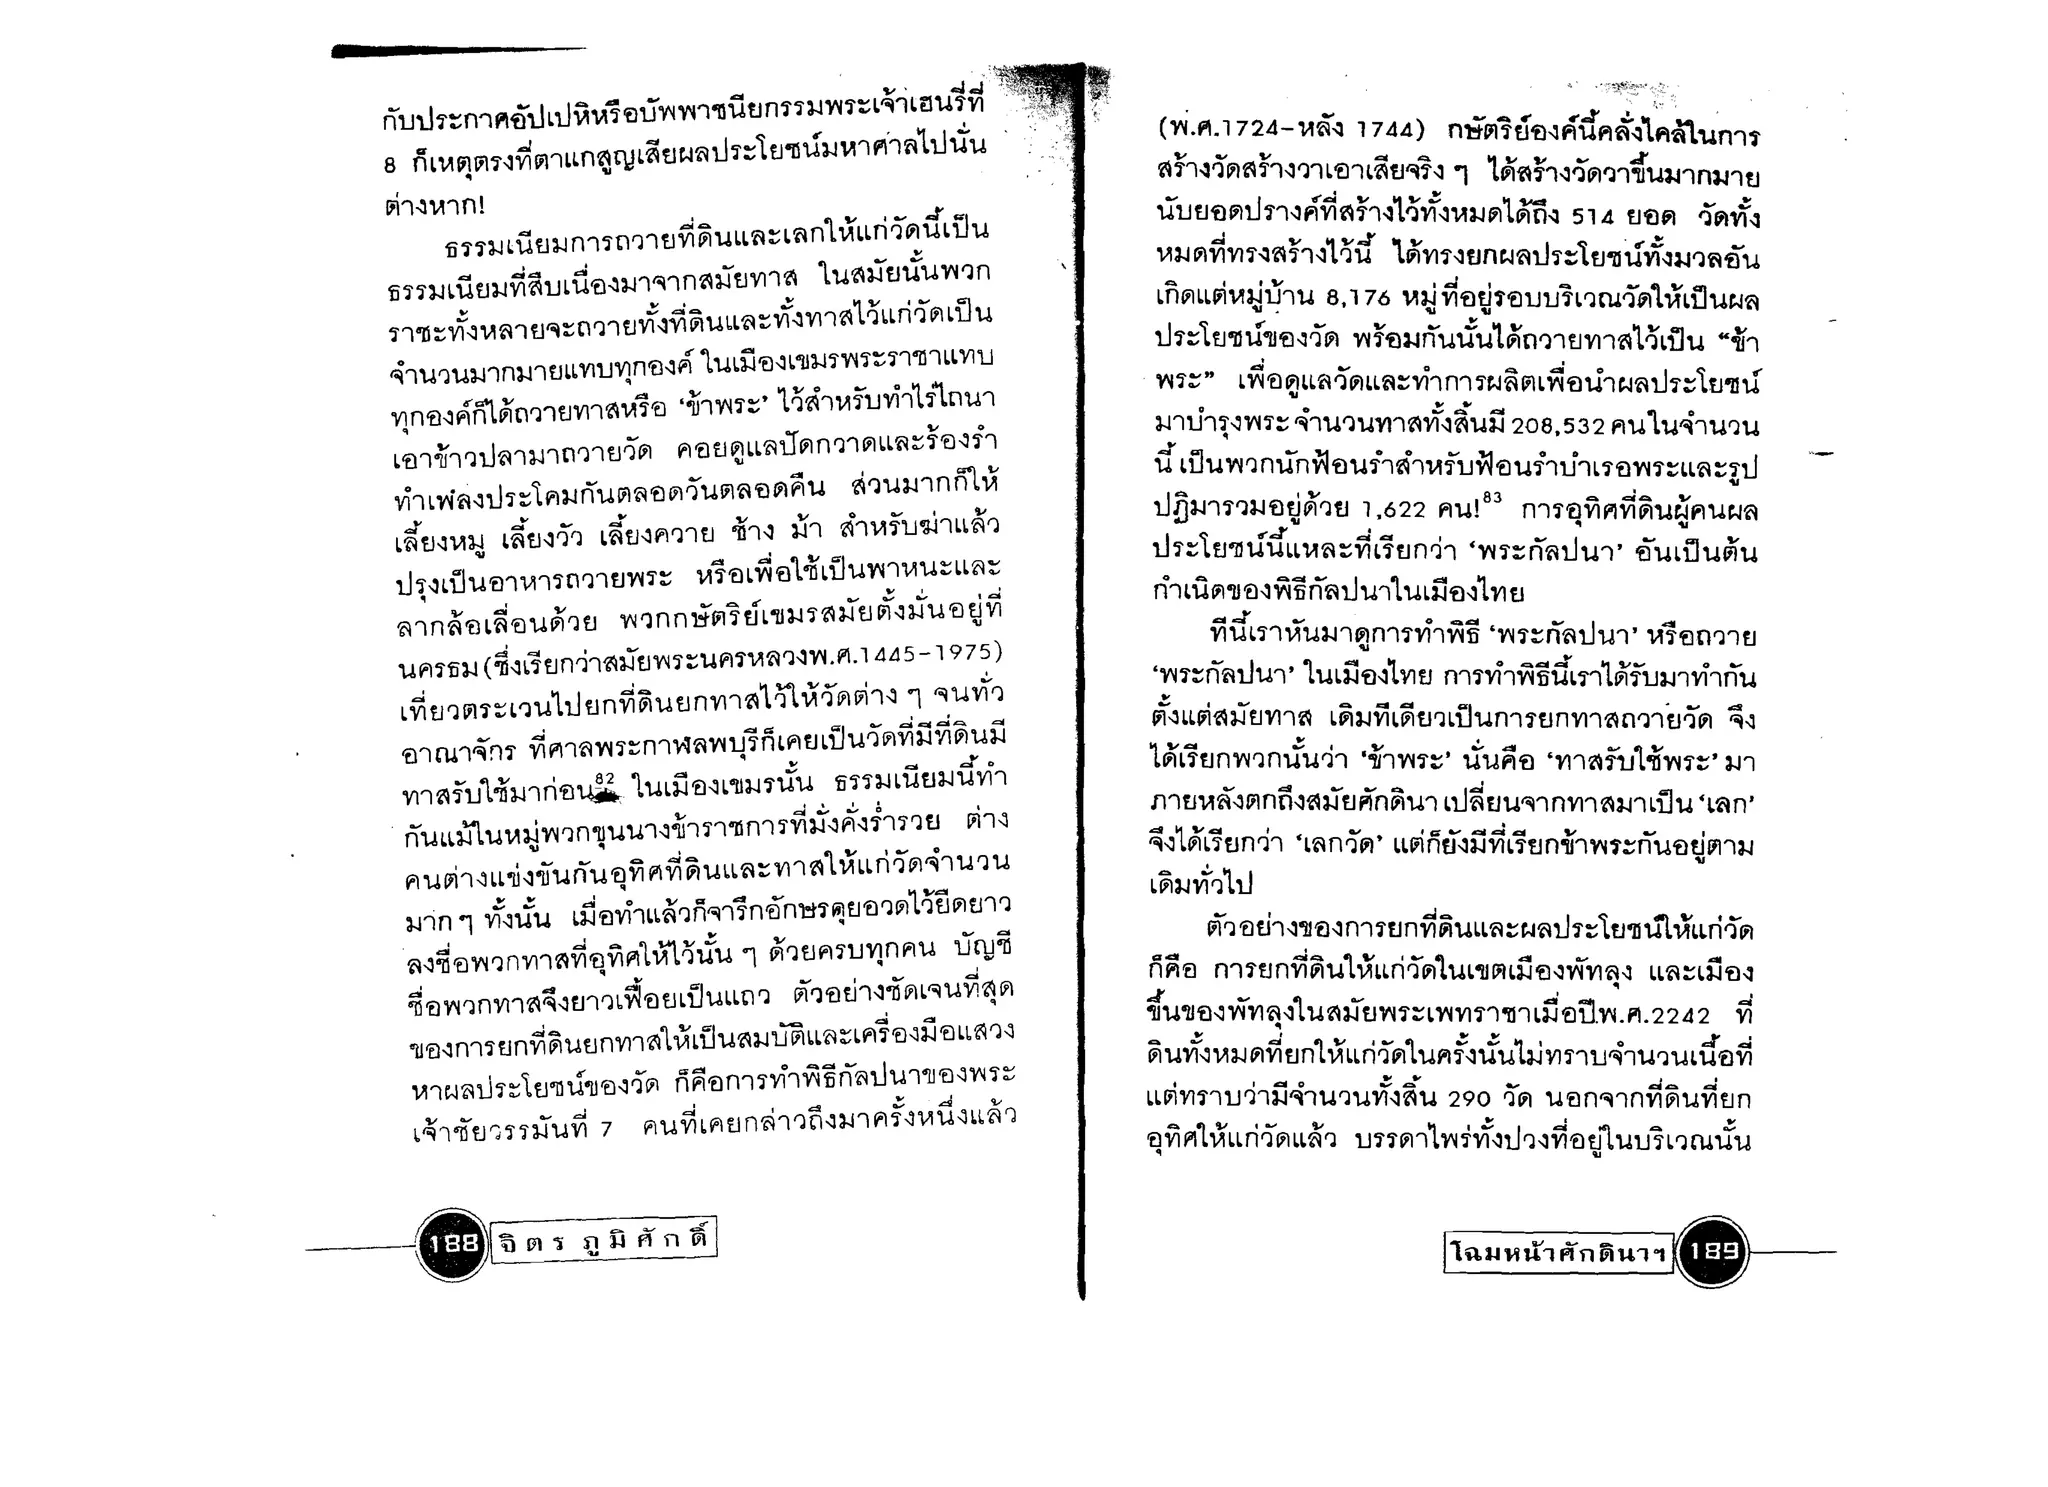 กับประกาศอัปเปหิหรือบัพพาชนียกรรมพระเจ้าเฮนรี่ที่
8 ก็เหตุตรงที่ตาแกสูญเสียผลประโยชน์มหาศาลไปนั่น
ต่างหาก!
ธรรมเนียมการถวายที่ดินและเลกให้แก่วัดนี้เป็น
ธรรมเนียมที่สืบเนื่องมาจากสมัยทาส ในสมัยนั้นพวก
ราชะทั้งหลายจะถวายทั้งที่ดินและทั้งทาสไว้แก่วัดเป็น
จำนวนมากมายแทบทุกองค์ ในเมืองเขมรพระราชาแทบ
ทุกองค์ก็ได้ถวายทาสหรือ ‘ข้าพระ’ ไว้สำหรับทำไร่ไถนา
เอาข้าวปลามาถวายวัด คอยดูแลปัดกวาดและร้องรำ
ทำเพลงประโคมกันตลอดวันตลอดคืน ส่วนมากก็ให้
เลี้ยงหมู เลี้ยงวัว เลี้ยงควาย ช้าง ม้า สำหรับฆ่าแล้ว
ปรุงเป็นอาหารถวายพระ หรือเพื่อใช้เป็นพาหนะและ
ลากล้อเลื่อนด้วย พวกกษัตริย์เขมรสมัยตั้งมั่นอยู่ที่
นครธม (ซึ่งเรียกว่าสมัยพระนครหลวงพ.ศ.1445-1975)
เที่ยวตระเวนไปยกที่ดินยกทาสไว้ให้วัดต่าง ๆ จนทั่ว
อาณาจักร ที่ศาลพระกาฬลพบุรีก็เคยเป็นวัดที่มีที่ดินมี
ทาสรับใช้มาก่อน82 ในเมืองเขมรนั้น ธรรมเนียมนี้ทำ
กันแม้ในหมู่พวกขุนนางข้าราชการที่มั่งคั่งร่ำรวย ต่าง
คนต่างแข่งขันกันอุทิศที่ดินและทาสให้แก่วัดจำนวน
มาก ๆ ทั้งนั้น เมื่อทำแล้วก็จารึกอักษรคุยอวดไว้ยืดยาว
ลงชื่อพวกทาสที่อุทิศให้ไว้นั้น ๆ ด้วยครบทุกคน บัญชี
ชื่อพวกทาสจึงยาวเฟื้อยเป็นแถว ตัวอย่างชัดเจนที่สุด
ของการยกที่ดินยกทาสให้เป็นสมบัติและเครื่องมือแสวง
หาผลประโยชน์ของวัด ก็คือการทำพิธีกัลปนาของพระ
เจ้าชัยวรรมันที่ 7 คนที่เคยกล่าวถึงมาครั้งหนึ่งแล้ว
188 จิตร ภูมิศักดิ์
(พ.ศ.1724-หลัง 1744) กษัตริย์องค์นี้คลั่งไคล้ในการ
สร้างวัดสร้างวาเอาเสียจริง ๆ ได้สร้างวัดวาขึ้นมากมาย
นับยอดปรางค์ที่สร้างไว้ทั้งหมดได้ถึง 514 ยอด วัดทั้ง
หมดที่ทรงสร้างไว้นี้ ได้ทรงยกผลประโยชน์ทั้งมวลอัน
เกิดแต่หมู่บ้าน 8,176 หมู่ ที่อยู่รอบบริเวณวัดให้เป็นผล
ประโยชน์ของวัด พร้อมกันนั้นได้ถวายทาสไว้เป็น “ข้า
พระ” เพื่อดูแลวัดและทำการผลิตเพื่อนำผลประโยชน์
มาบำรุงพระ จำนวนทาสทั้งสิ้นมี 208,532 คน ในจำนวน
นี้ เป็นพวกนักฟ้อนรำสำหรับฟ้อนรำบำเรอพระและรูป
ปฏิมารวมอยู่ด้วย 1,622 คน!83 การอุทิศที่ดินผู้คนผล
ประโยชน์นี้แหละที่เรียกว่า ‘พระกัลปนา’ อันเป็นต้น
กำเนิดของพิธีกัลปนาในเมืองไทย
ทีนี้เราหันมาดูการทำพิธี ‘พระกัลปนา’ หรือถวาย
‘พระกัลปนา’ ในเมืองไทย การทำพิธีนี้เราได้รับมาทำกัน
ตั้งแต่สมัยทาส เดิมทีเดียวเป็นการยกทาสถวายวัด จึง
ได้เรียกพวกนั้นว่า ‘ข้าพระ’ นั่นคือ ‘ทาสรับใช้พระ’ มา
ภายหลังตกถึงสมัยศักดินา เปลี่ยนจากทาสมาเป็น ‘เลก’
จึงได้เรียกว่า ‘เลกวัด’ แต่ก็ยังมีที่เรียกข้าพระกันอยู่ตาม
เดิมทั่วไป
ตัวอย่างของการยกที่ดินและผลประโยชน์ให้แก่วัด
ก็คือ การยกที่ดินให้แก่วัดในเขตเมืองพัทลุง และเมือง
ขึ้นของพัทลุงในสมัยพระเพทราชาเมื่อปีพ.ศ.2242 ที่
ดินทั้งหมดที่ยกให้แก่วัดในครั้งนั้นไม่ทราบจำนวนเนื้อที่
แต่ทราบว่ามีจำนวนทั้งสิ้น 290 วัด นอกจากที่ดินที่ยก
อุทิศให้แก่วัดแล้ว บรรดาไพร่ทั้งปวงที่อยู่ในบริเวณนั้น
โฉมหน้าศักดินาฯ 189